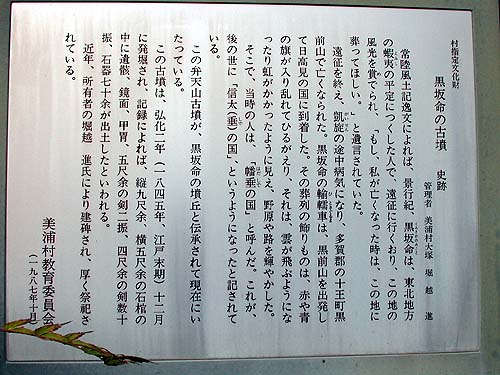 村指定文化財
黒坂命の古墳　史跡
管理者　美浦村大塚　堀越　進
常陸風土記逸文によれば、景行紀、黒坂命は、東北地方
の蝦夷の平定につくした人で、遠征に行くおり、この地の
風光を賞でられ、「もし、私が亡くなった時は、この地に
葬ってほしい。」と遺言されていた。
遠征を終え、凱旋の途中病気になり、多賀郡の十王町黒
前山で亡くなられた。黒坂命の輸轜車は、黒前山を出発し
て日高見の国に到着した。その葬列の飾りものは、赤や青
の旗が入り乱れてひるがえり、それは、雲が飛ぶようにな
ったり虹がかかったように見え、野原や路を輝やかした。
そこで、当時の人は、「幡垂の国」と呼んだ。これが、
後の世に「信太(垂)の国」、というようになったと記されて
いる。
この弁天山古墳が、黒坂命の墳丘と伝承されて現在にい
たっている。
この古墳は、弘化二年(一八四五年、江戸末期)十二月
に発掘され、記録によれば、縦九尺余、横五尺余の石棺の
中に遺骸、鏡面　甲冑、五尺余の剣二振、四尺余の剣数十
振、石器七十余が出土したといわれる。
近年、所有者の堀越　進氏により建碑され、厚く祭祀さ
れている。
美浦村教育委員会
(一九八七年十月)